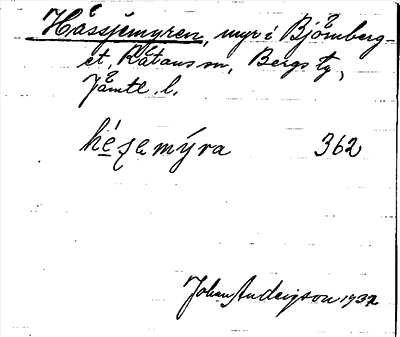 Håssjemyren, myr i Björnberg-
et, Rätans sn, Bergs tg,
Jämtl. l.
hésemýra 362
Johan Anderzson 1932